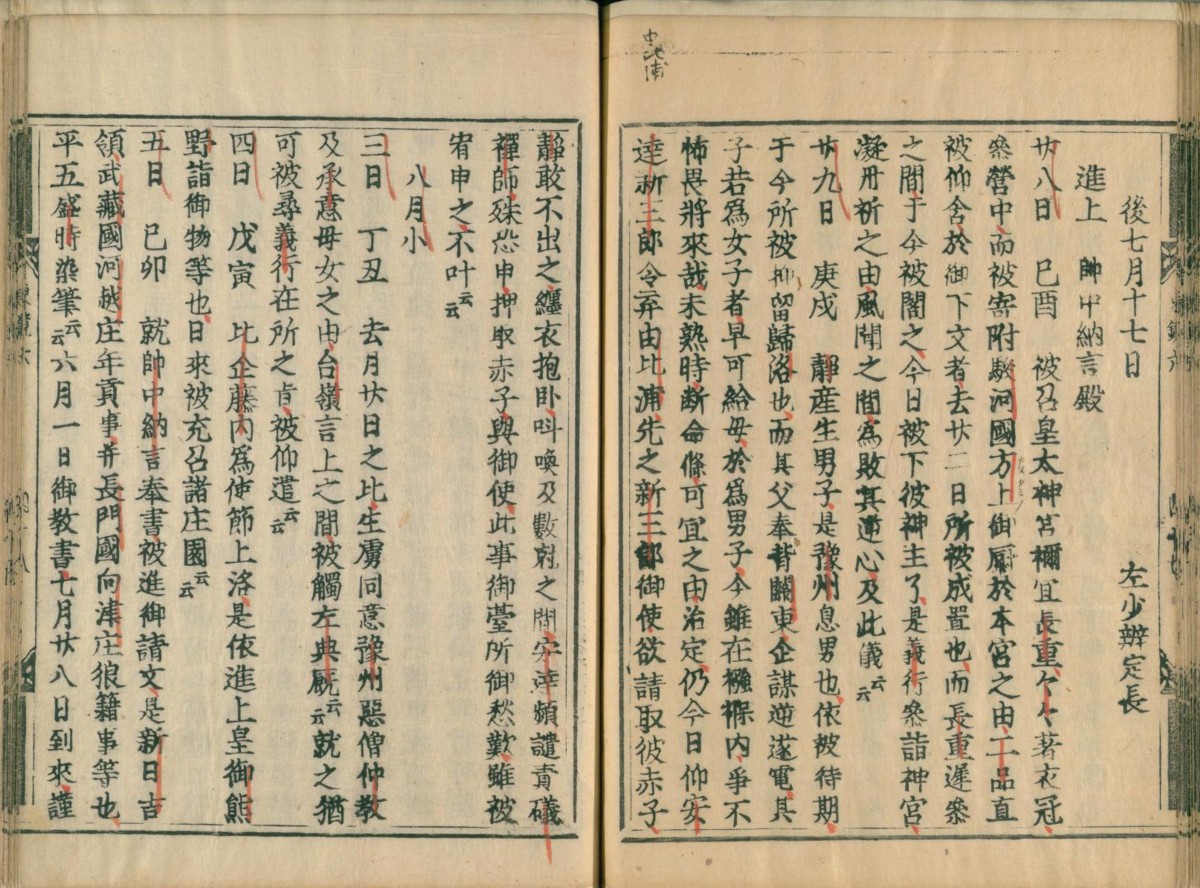 後七月十七日　左少辨定長
進上　帥中納言殿
廿八日　己酉　被召皇太神宮禰宜長重々々著衣冠
參營中而被寄附駿河國方上御厨於本宮之由二品直
被仰含於御下文者去廿二日所被成置也而長重遲參
之間于今被閣之今日被下彼神主了是義行參詣神宮
凝丹祈之由風聞之間爲敗其逆心及此儀云云
廿九日　庚戌　靜産生男子是豫州息男也依被待期
于今所被抑留歸洛也而其父奉背關東企謀逆遂電其
子若爲女子者早可給母於爲男子今雖在襁褓内爭不
怖畏將來哉未熟時断命條可宜之由治定仍今日仰安
達新三郎令弃由比浦先之新三郎御使欲請取彼赤子
靜敢不出之纏衣抱卧叫喚及數尅之間安達頻譴責礒
禪師殊恐申押取赤子與御使此事御臺所御愁歎雖被
宥申之不叶云云
八月小
三日　丁丑　去月廿日之比生虜同意豫州惡僧仲教
及承意母女之由台嶺言上之間被觸左典厩云云就之猶
可被尋義行在所之肯被仰遣云云
四日　戊寅　比企藤内爲使節上洛是依進上皇御熊
野詣御物等也日來被充召諸庄園云云
五日　己卯　就帥中納言奉書被進御請文是新日吉
領武藏國河越庄年貢事并長門國向津庄狼籍事等也
平五盛時染筆云云六月一日御教書七月廿八日到來謹